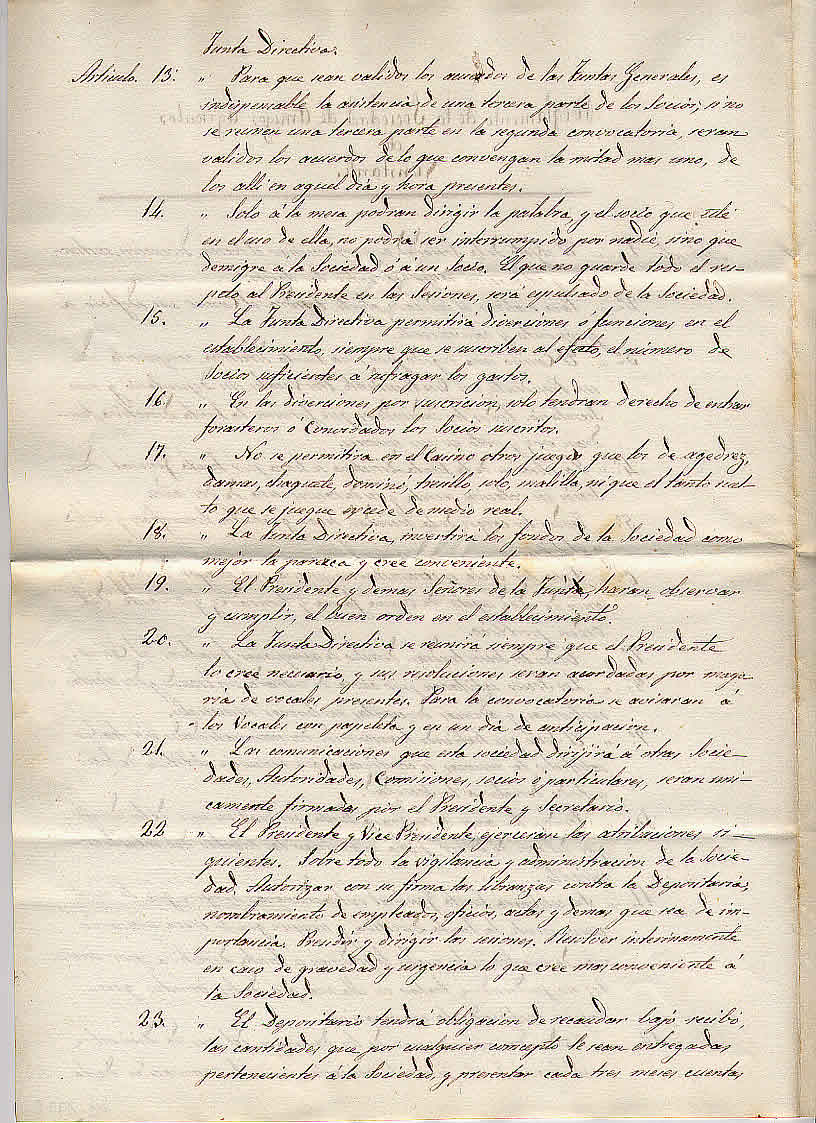 Junta Directiva.
Articulo. 13. „ Para que sean validos los acuerdos de las Juntas Generales, es
indispensable la asistencia de una tercera parte de los Socios; si no
se reunen una tercera parte en la segunda convocatoria, seran
validos los acuerdos de lo que convengan la mitad mas uno, de
los alli en aquel dia y hora presentes.
14. „ Solo á la mesa podran dirigir la palabra, y el socio que esté
en el uso de ella, no podrá ser interrumpido por nadie, sino que
demigre a la Sociedad ó á un Socio. El que no guarde todo el res-
peto al Presidente en las Sesiones, será espulsado de la Sociedad.
15. „ La Junta Directiva permitirá diverciones ó funciones en el
establecimiento, siempre que se suscriben al efeto, el número de
Socios suficientes á sufragar los gastos.
16. „ En las diverciones por suscricion, solo tendran derecho de entrar
forasteros ó Convidados los Socios suscritos.
17. „ No se permitirá en el Casino otros juegos que los de agedrez,
damas, chaquete, dominó, tresillo, solo, malilla, ni que el tanto suel-
to que se juegue escede de medio real.
18. „ La Junta Directiva, invertirá los fondos de la Sociedad como
mejor la paresca y cree conveniente.
19. „ El Presidente y demas Señores de la Junta, haran observar
y cumplir, el buen orden en el establecimiento.
20. „ La Junta Directiva se reunirá siempre que el Presidente
lo cree necesario, y sus resoluciones seran acordadas por mayo
ria de vocales presentes. Para la convocatoria se avisaran á
los Vocales con papeleta y en un dia de anticipacion.
21. „ Las comunicaciones que esta sociedad dirijirá á otras Socie-
dades, Autoridades, Comisiones, socios ó particulares, seran uni-
camente firmadas por el Presidente y Secretario.
22 „ El Presidente y Vice Presidente, ejerceran las atribuciones si-
guientes. Sobre todo la vigilancia y administracion de la Socie-
dad. Autorizar con su firma las libranzas contra la Depositaria,
nombramiento de empleados, oficios, actas y demas que sea de im-
portancia. Presidir y dirigir las sesiones. Resolver interinamente
en caso de gravedad y urgencia lo que cree mas conveniente á
la Sociedad.
23. „ El Depositario tendrá obligacion de recaudar bajo recibo,
las cantidades que por cualquier concepto le sean entregadas
pertenecientes á la Sociedad, y presentar cada tres meses cuentas